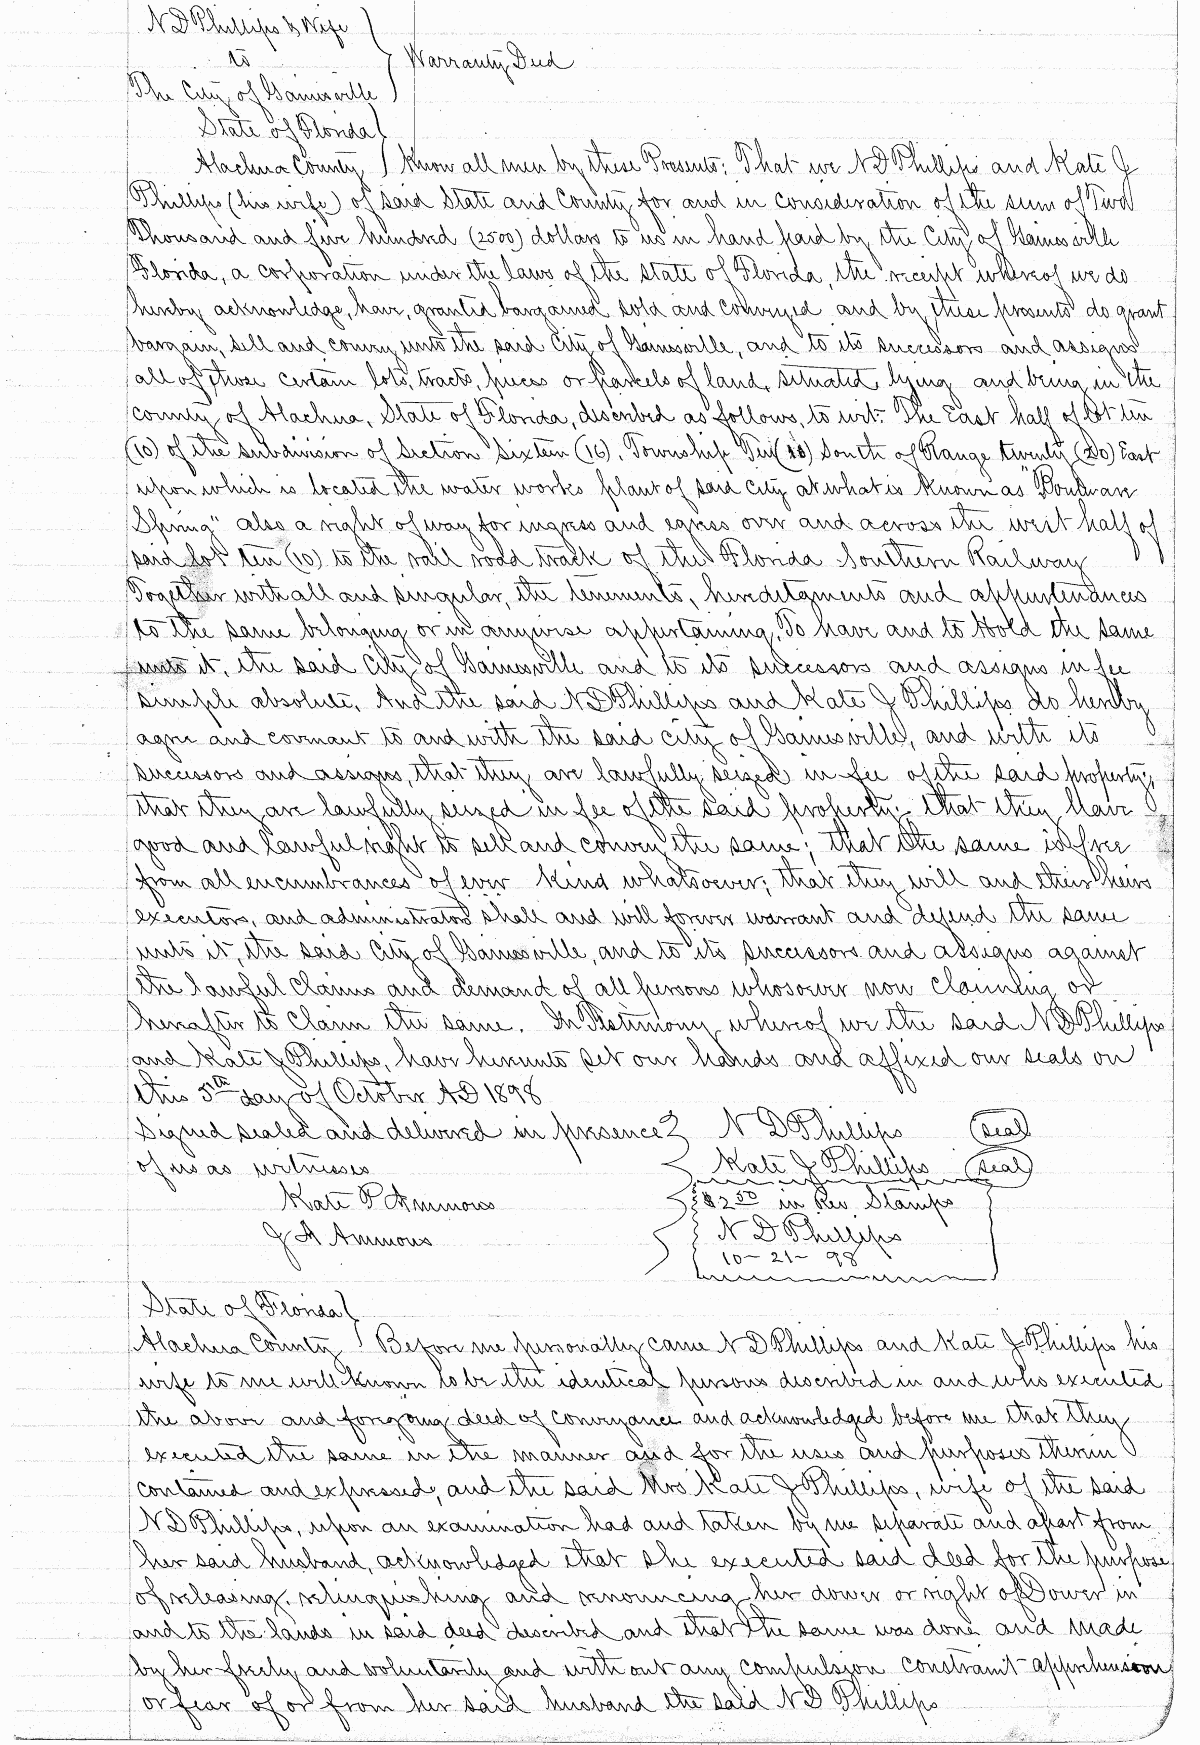 N D Phillips & Wife
to
The City of Gainesville
Warranty Deed
State of Florida
Alachua County Know all men by these Presents: That we N D Phillips and Kate J
Phillips (his wife) of said State and County for and in consideration of the sum of Two
Thousand and five hundred (2500) dollars to us in hand paid by the City of Gainesville
Florida, a corporation under the laws of the state of Florida, the receipt whereof we do
hereby acknowledge, have, granted bargained sold and conveyed and by these presents do grant
bargain, sell and convey unto the said City of Gainesville, and to its successors and assigns
all of those certain lots, tracts, pieces or parcels of land, situated lying and being in the
county of Alachua, State of Florida, described as follows, to wit: The East half of lot ten
(10) of the subdivision of Section Sixteen (16), Township Ten (10) South of Range twenty (20) East
upon which is located the water works plant of said city at what is known as "Boulware
Spring" also a right of way for ingress and egress over and across the west half of
said lot ten (10) to the rail road track of the Florida Southern Railway
Together with all and singular, the tenements, hereditaments and appurtenances
to the same belonging or in anywise appertaining, To have and to Hold the same
unto it, the said City of Gainesville and to its successors and assigns in fee
simple absolute. And the said N D Phillips and Kate J Phillips do hereby
agree and covenant to and with the said city of Gainesville, and with its
successors and assigns, that they are lawfully seized in fee of the said property;
that they are lawfully seized in fee of the said property; that they have
good and lawful right to sell and convey the same; that the same is free
from all encumbrances of ever kind whatsoever; that they will and their heirs
executors, and administrators shall and will forever warrant and defend the same
unto it, the said City of Gainesville, and to its successors and assigns against
the lawful claims and demand of all persons whosoever now claiming or
hereafter to claim the same. In Testimony whereof we the said N D Phillips
and Kate J Phillips, have hereunto set our hands and affixed our seals on
this 5th day of October A D 1898
Signed sealed and delivered in presence N D Phillips (seal)
of us as witnesses Kate J Phillips (seal)
Kate P Ammons $2 50 in Rev. Stamps
J A Ammons N D Phillips
10-21-98
State of Florida
Alachua County Before me personally came N D Phillips and Kate J Phillips his
wife to me well known to be the identical persons described in and who executed
the above and foregoing deed of conveyance and acknowledged before me that they
executed the same in the manner and for the uses and purposes therein
contained and expressed, and the said Mrs Kate J Phillips, wife of the said
N D Phillips, upon an examination had and taken by me separate and apart from
her said husband, acknowledged that she executed said deed for the purpose
of releasing, relinquishing and renouncing her dower or right of Dower in
and to the lands in said deed described and that the same was done and made
by her freely and voluntarily and with out any compulsion constraint apprehension
or fear of or from her said husband the said N D Phillips